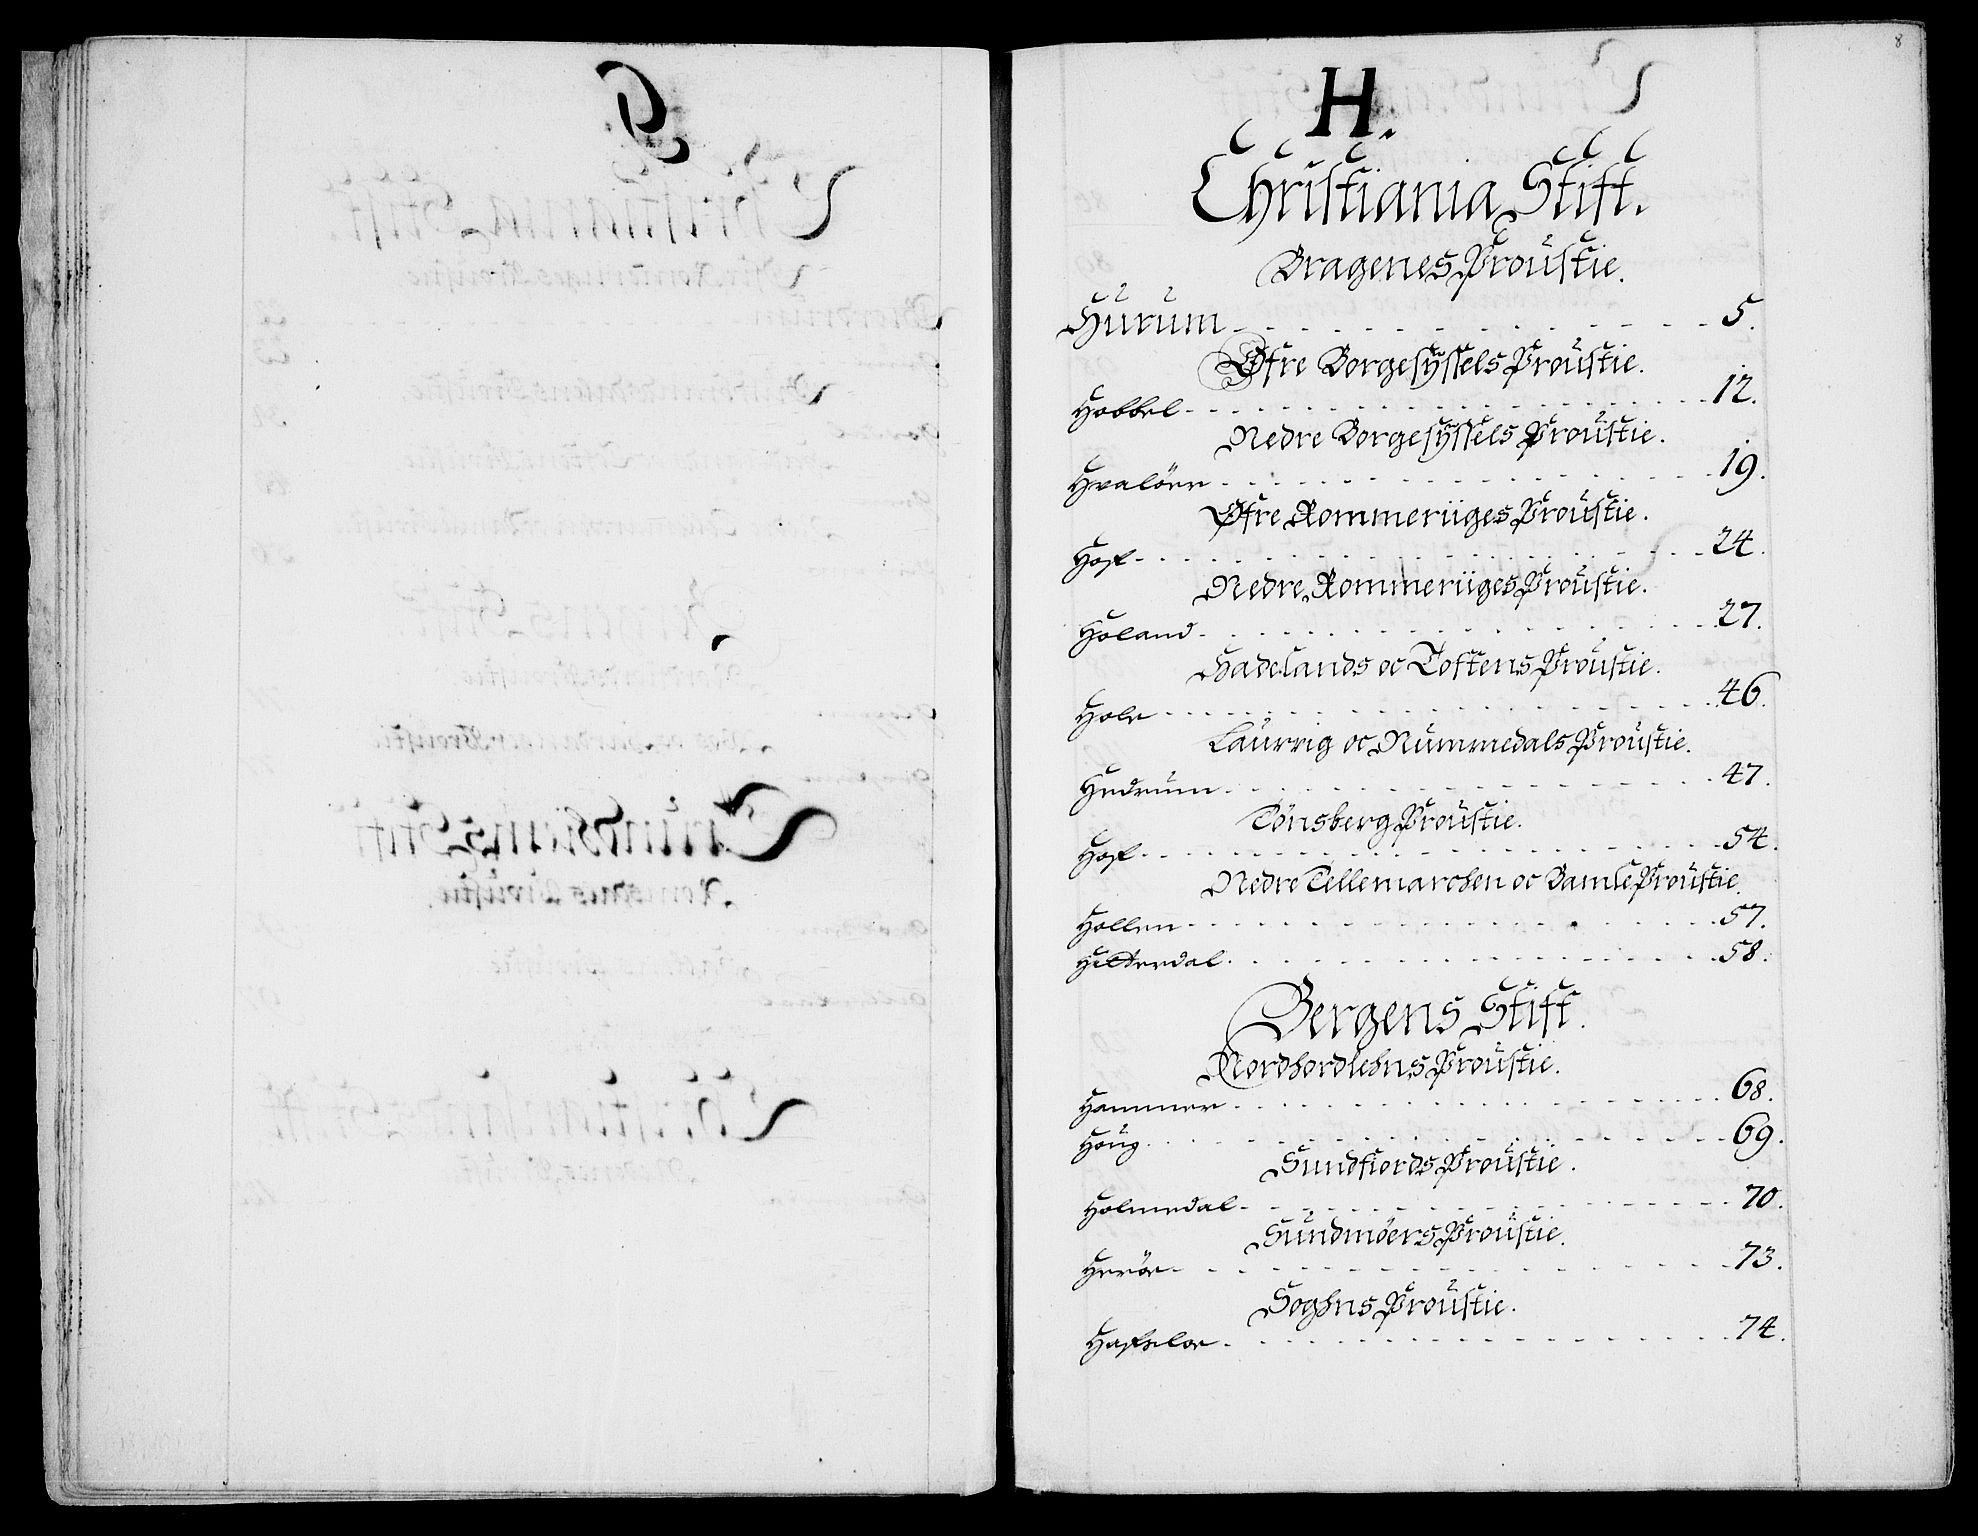 8
H.
Christiania Stift.
Bragenes Proustie.
Hurum 5.
Øfre Borgesÿssels Proustie.
Hobbel 12.
Nedre Borgesÿssels Proustie.
Hvalöer 19.
Øfre Rommeriiges Proustie.
Hof 24.
Nedre Rommeriiges Proustie.
Holand 27.
Hadelands oc Toftens Proustie.
Hole 46.
Laurvig oc Nummedals Proustie.
Hedrum 47.
Tönsberg Proustie.
Hof 54.
Nedre Tellemarchen oc Bamle Proustie.
Hollen 57.
Hitterdal 58.
Bergens Stift.
Nordhordlehns Proustie.
Hammer 68.
Houg 69.
Sundfiords Proustie.
Holmedal 70.
Sundmöers Proustie.
Heröe 73.
Soghns Proustie.
Hafsloe 74.